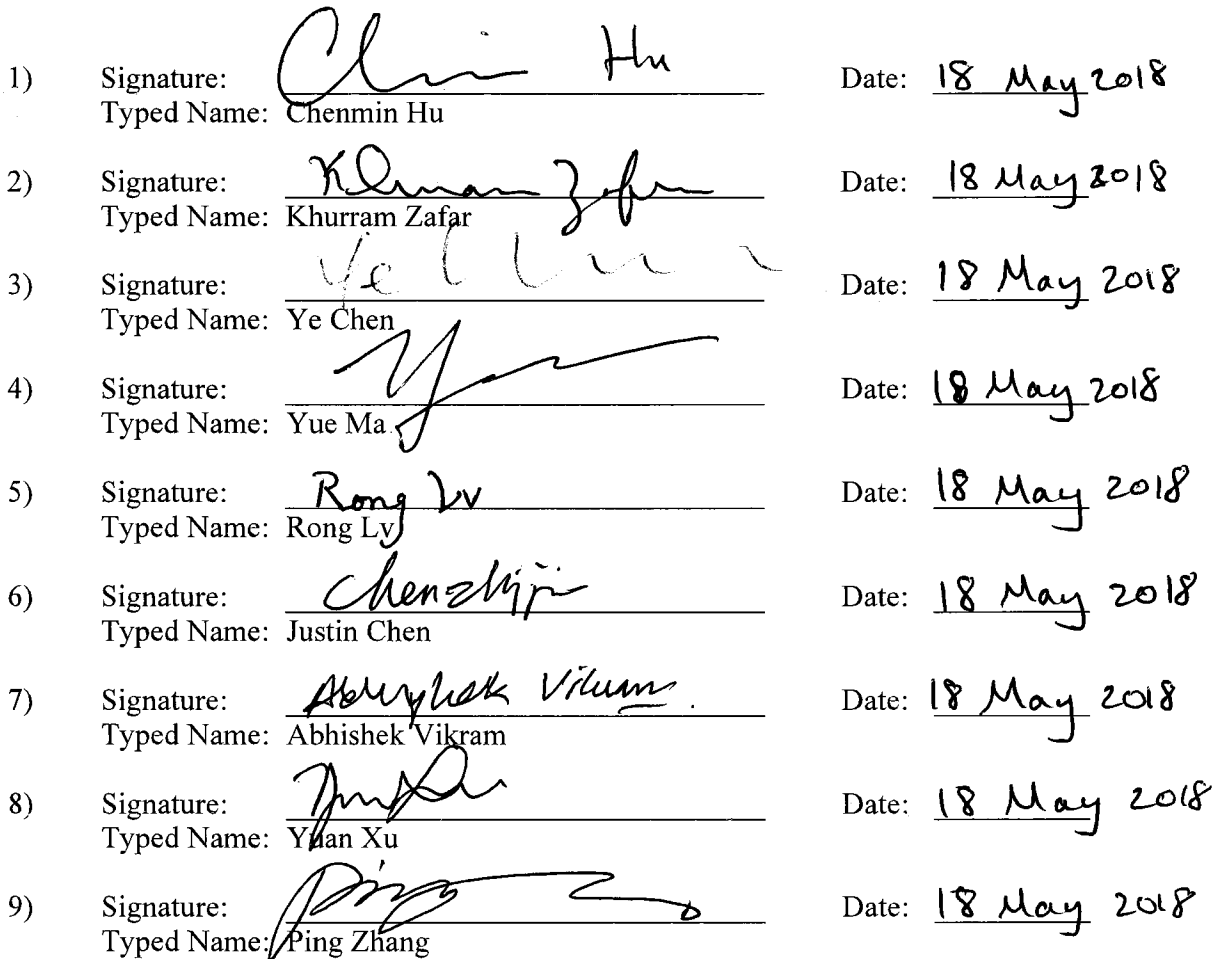 1) Signature: Chenmin Hu Date: 18 May 2018
Typed Name: Chenmin Hu
2) Signature: Khurram Zafar Date: 18 May 2018
Typed Name: Khurram Zafar
3) Signature: Ye Chen Date: 18 May 2018
Typed Name: Ye Chen
4) Signature: Date: 18 May 2018
Typed Name: Yue Ma
5) Signature: Rong Lv Date: 18 May 2018
Typed Name: Rong Lv
6) Signature: Chenzhijin Date: 18 May 2018
Typed Name: Justin Chen
7) Signature: Abhishek Vikram Date: 18 May 2018
Typed Name: Abhishek Vikram
8) Signature: Date: 18 May 2018
Typed Name: Yuan Xu
9) Signature: Ping Date: 18 May 2018
Typed Name: Ping Zhang